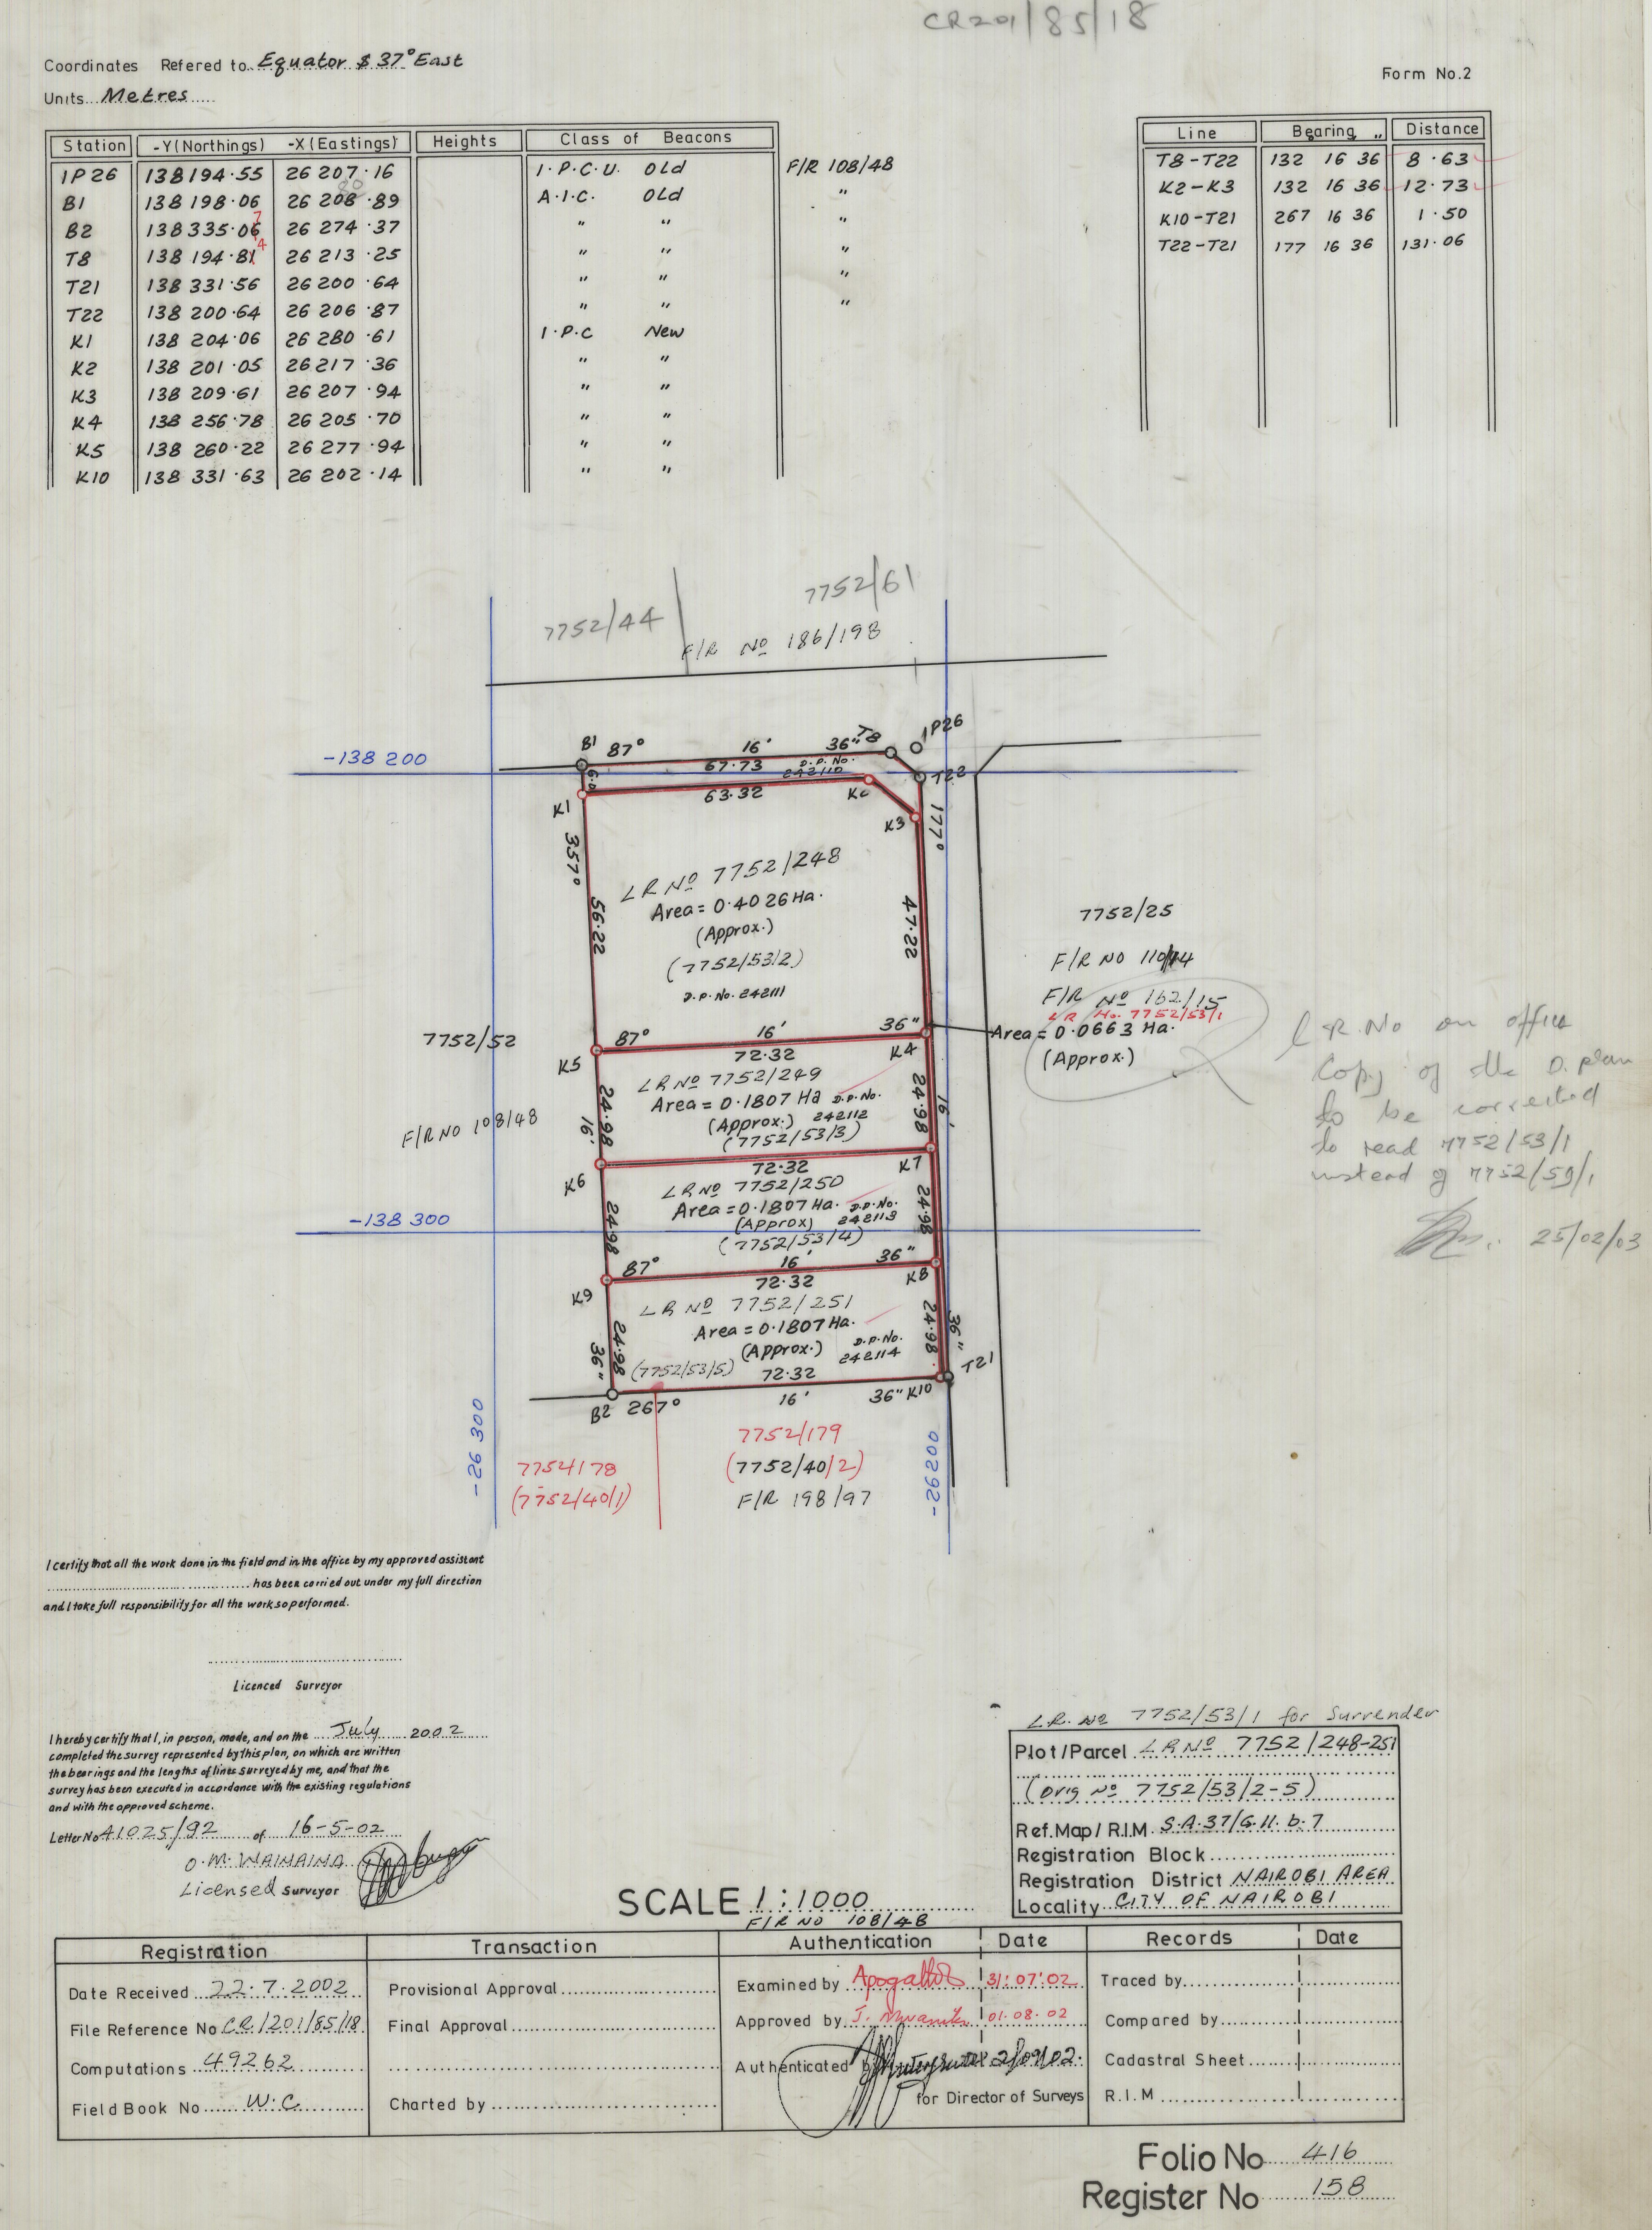 CR201/85/18
Coordinates Refered to Equator $ 37° East
Units Metres
Form No.2
Station -Y(Northings) -X(Eastings) Heights Class of Beacons
1P26 138194.55 26 207.16 I.P.C.U. Old F/R 108/48
B1 138 198.06 26 208.89 A.I.C. Old "
80
B2 138335.06 26 274.37 " " "
7
T8 138 194.81 26 213.25 " " "
4
T21 138 331.56 26 200.64 " " "
T22 138 200.64 26 206.87 " " "
K1 138 204.06 26 280.61 I.P.C New
K2 138 201.05 26217.36 " "
K3 138 209.61 26 207.94 " "
K4 138 256.78 26 205.70 " "
K5 138 260.22 26 277.94 " "
K10 138 331.63 26 202.14 " "
Line Bearing " Distance
T8-T22 132 16 36 8.63
K2-K3 132 16 36 12.73
K10-T21 267 16 36 1.50
T22-T21 177 16 36 131.06
7752/44
7752/61
F/R No 186/198
-138 200
B1 87° 16' 36" T8 1P26
67.73 D.P. No. 242110
T22
K1 63.32 K2
K3
357° 177°
LR No 7752/248
Area = 0.4026 Ha.
(Approx.)
(7752/53/2)
D.P. No. 242111
56.22 47.22
7752/25
F/R NO 110/14
F/R No 162/15
LR No. 7752/53/1
Area = 0.0663 Ha.
(Approx.)
LR.No on office
Copy of the D.plan
to be corrected
to read 7752/53/1
instead of 7752/59/1
25/02/03
7752/52
F/R NO 108/48
K5 87° 16' 36" K4
72.32
LR No 7752/249
Area = 0.1807 Ha D.P. No.
(Approx.) 242112
(7752/53/3)
24.98 16' 24.98 16'
K6 72.32 K7
LR No 7752/250
Area = 0.1807 Ha. D.P. No.
(Approx) 242113
(7752/53/4)
24.98 24.98
-138 300
K9 87° 16' 36" K8
72.32
LR No 7752/251
Area = 0.1807 Ha.
(Approx.) D.P. No.
242114
(7752/53/5)
24.98 36" 24.98 36"
72.32 T21
B2 267° 16' 36" K10
-26 300
-26200
7752/178
(7752/40/1)
7752/179
(7752/40/2)
F/R 198/97
I certify that all the work done in the field and in the office by my approved assistant
has been carried out under my full direction
and I take full responsibility for all the work so performed.
Licenced Surveyor
I hereby certify that I, in person, made, and on the July 2002
completed the survey represented by this plan, on which are written
the bearings and the lengths of lines surveyed by me, and that the
survey has been executed in accordance with the existing regulations
and with the approved scheme.
Letter No 41025/92 of 16-5-02
O.M. WAINAINA
Licensed Surveyor
SCALE 1:1000
F/R NO 108/48
LR. No 7752/53/1 for Surrender
Plot/Parcel LR No 7752/248-251
(Orig No 7752/53/2-5)
Ref. Map/R.I.M. S.A.37/G.11.b.7
Registration Block
Registration District NAIROBI AREA
Locality CITY OF NAIROBI
Registration Transaction Authentication Date Records Date
Date Received 22.7.2002
File Reference No CR/201/85/18
Computations 49262
Field Book No W.C.
Provisional Approval
Final Approval
Charted by
Examined by 31:07:02
Approved by 01.08.02
Authenticated by
for Director of Surveys
Traced by
Compared by
Cadastral Sheet
R.I.M
Folio No 416
Register No 158